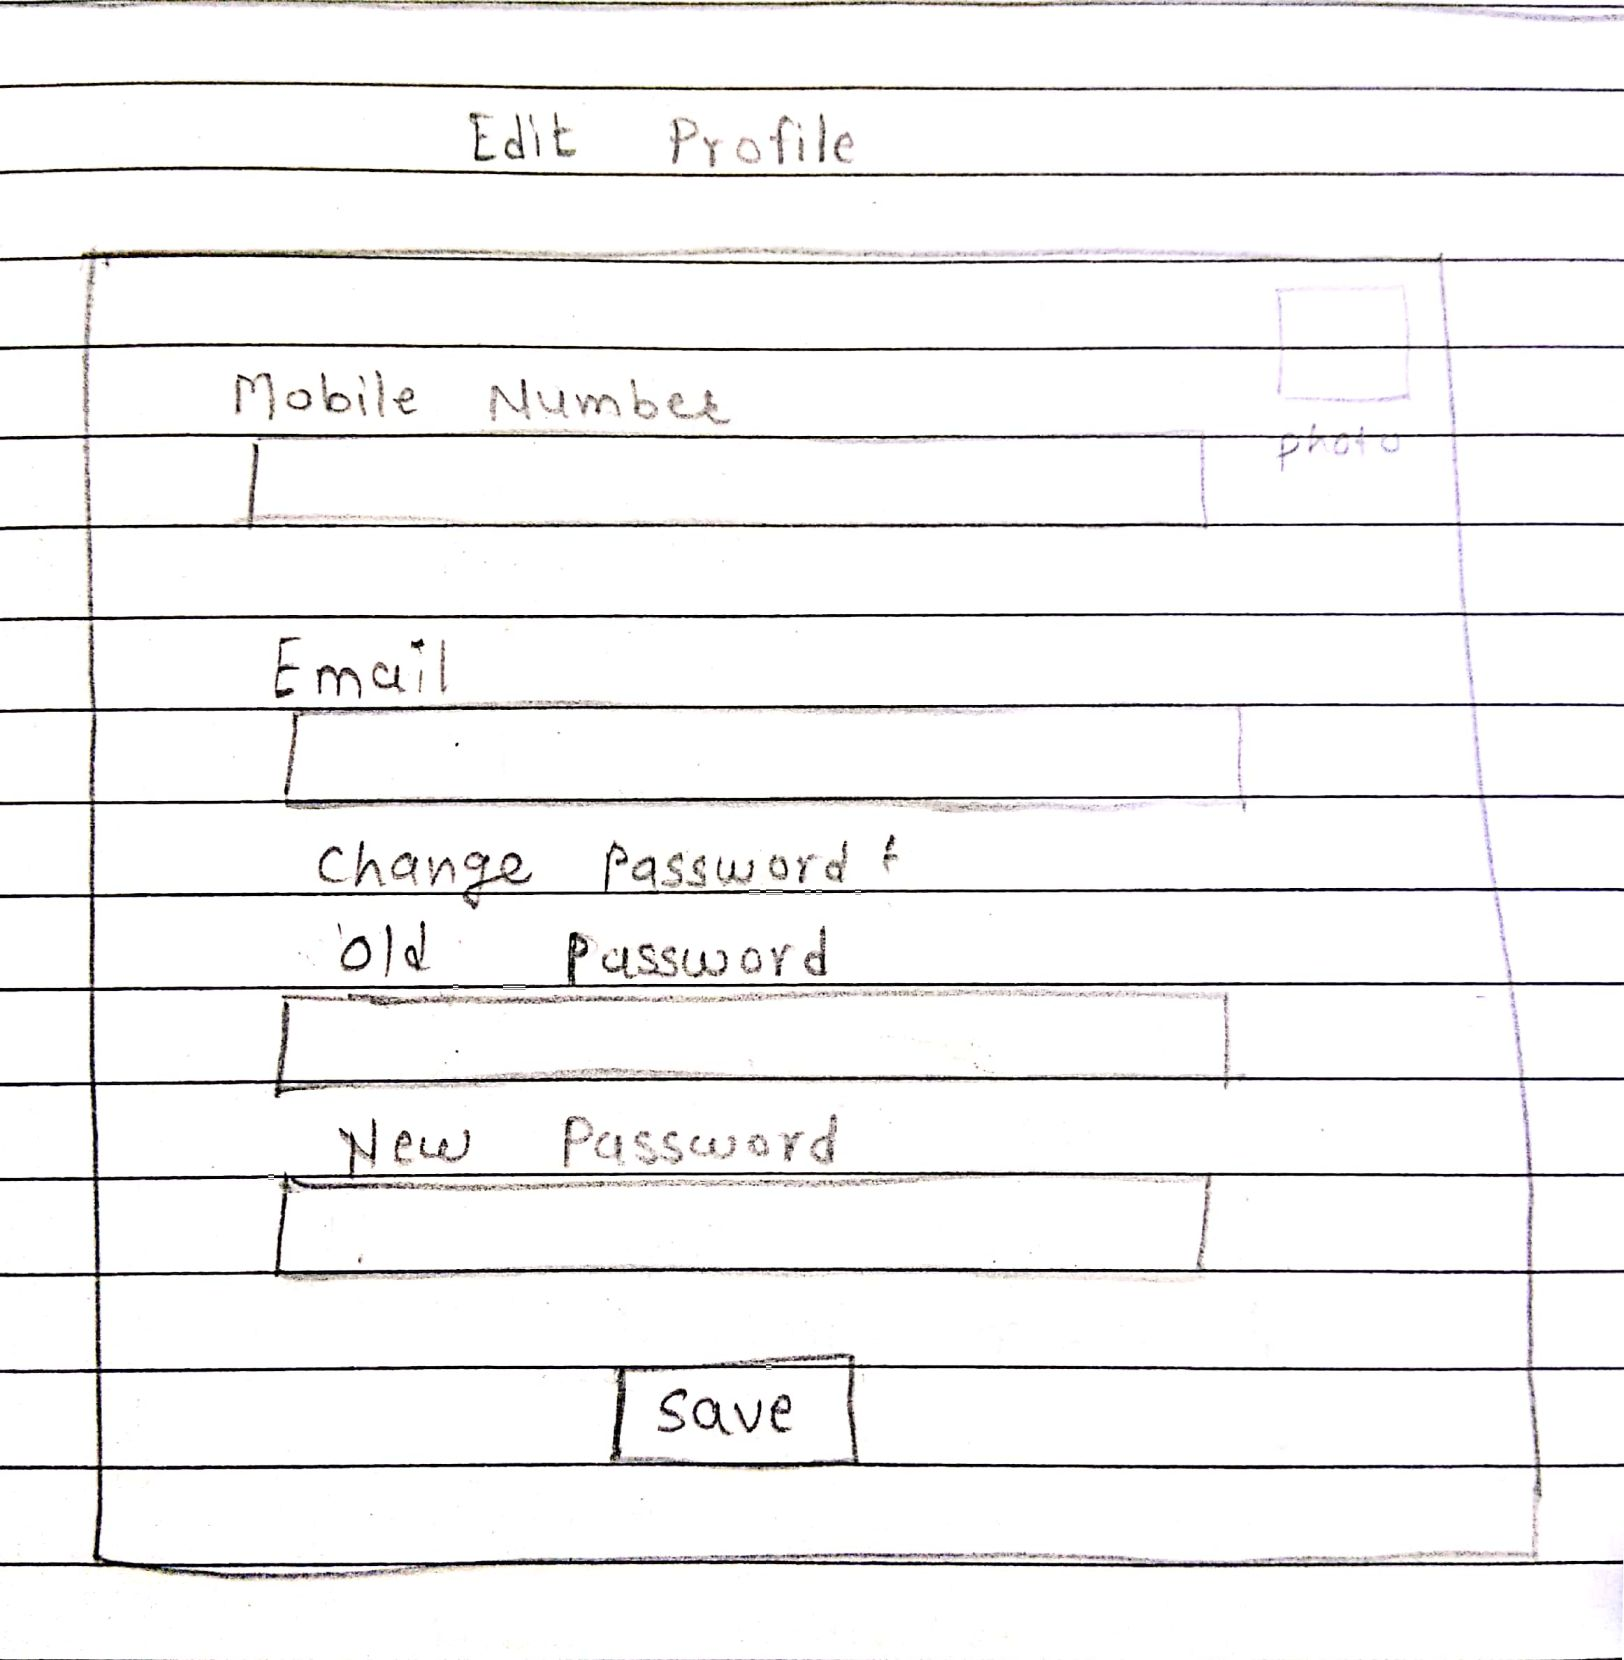 Edit Profile
photo
Mobile Number
Email
Change Password :
Old Password
New Password
Save